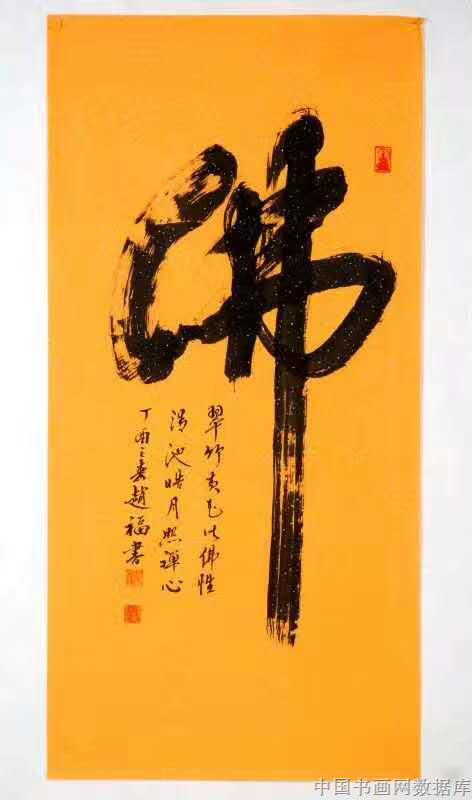 佛
翠竹黄花佛性
清池皓月照禪心
丁酉之春趙福書
中国书画网数据库